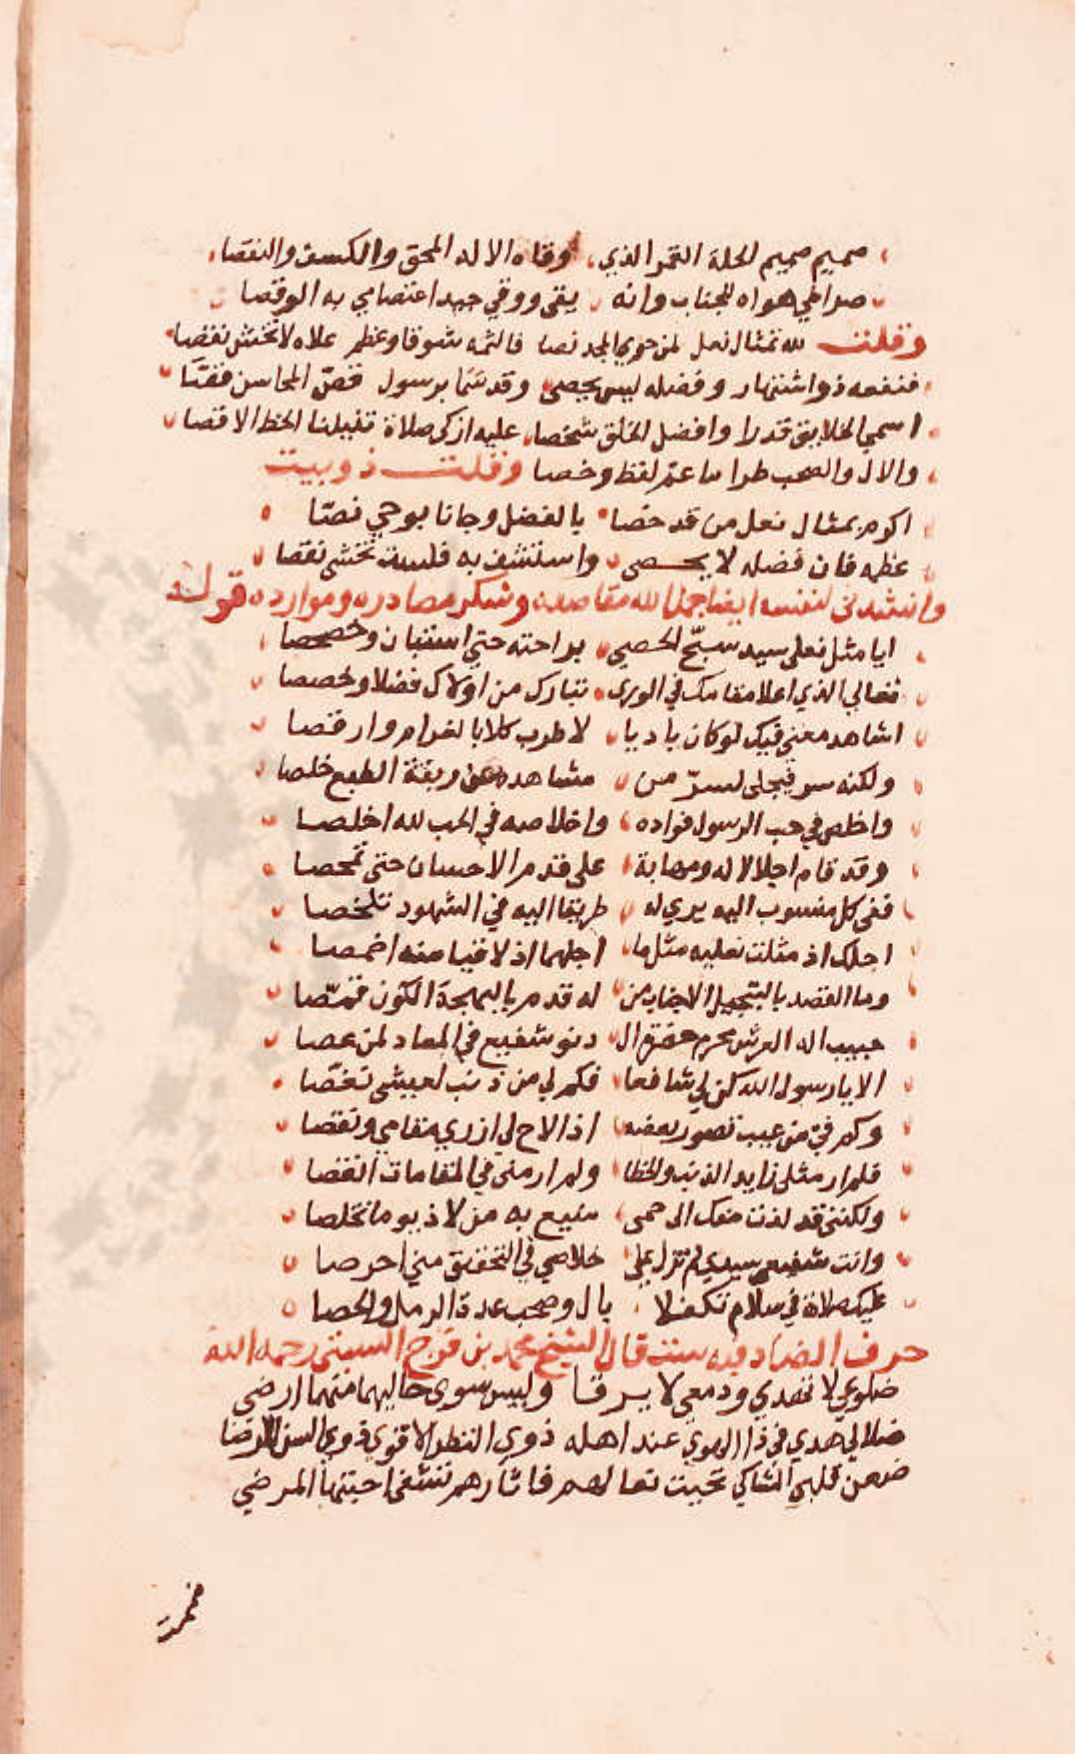 صميم صميم الحلة القمر الذي وقاه الاله المحق والكسف والنقصا
صراطي هواه للجناب وانه يقى ووقي جيد اعتصامي به الوقصا
وقلت لله تمثال نعل لمن حوي المجد نصا فالثمه شوقا وعظم علاه لا تخش نغصا
فنفعه ذو اشتهار وفضله ليس يحصى وقد سما برسول فص المحاسن فصا
اسمي الخلايق قدرا وافضل الخلق شخصا عليه ازكى صلاة تنيلنا الحظ الاقصا
والال والصحب طرا ما عم لفظ وخصا وقلت ذوبيت
اكرم بمثال نعل من قد خصا بالفضل وجانا بوحي نصا
عظمه فان فضله لا يحصى واستشف به فلست تخشى نقصا
وانشدني لنفسه ايضا جمل الله مقاصده وشكر مصادره وموارده قوله
ايا مثل نعلى سيد سبح الحصى براحته حتى استبان وحصحصا
تعالى الذي اعلا مقامك في الورى تبارك من اولاك فضلا وخصصا
اشاهد معني فيك لو كان باديا لاطرب كلا بالغرام وارقصا
ولكنه سر فيجلى لسر من مشاهده عن ربقة الطبع خلصا
واخلص في حب الرسول فواده واخلاصه في الحب لله اخلصا
وقد قام اجلالا له ومهابة على قدم الاحسان حتى تمحصا
ففى كل منسوب اليه يري له طريقا اليه في الشهود تلخصا
اجلك اذ مثلت نعليه مثل ما اجلهما اذ لاقيا منه اخمصا
وما القصد بالتبجيل الا جناب من له قدم بالبهجة الكون قمصا
حبيب اله العرش محرم حضرة ال دنو شفيع في المعاد لمن عصا
الا يا رسول الله كن لي شافعا فكم لي من ذنب لعيشى نغصا
وكم في من عيب تصور بعضه اذا لاح لي ازري بمقامي ونقصا
فلم ار مثلى زايد الذنب والخطا ولم ار منى في المقامات انقصا
ولكنني قد لذت منك الى حمى منيع به من لاذ يوما تخلصا
وانت شفيعي سيدي لم تزل على خلاصي في التحقيق مني احرصا
عليك صلاة في سلام تكفلا بال وصحب عدة الرمل والحصا
حرف الضاد فيه ست قال الشيخ محمد بن فرج السبتى رحمه الله
ضلوعي لا تهدي ودمعي لا يرقا وليس سوى حاليهما منهما ارضى
ضلالي هدي في ذا الهوي عند اهله ذوي النظر الاقوي ذوي السنن الارضا
ضعن قلبي الشاكي تحيت نعالهم فاثارهم تشفى احبتها المرضي